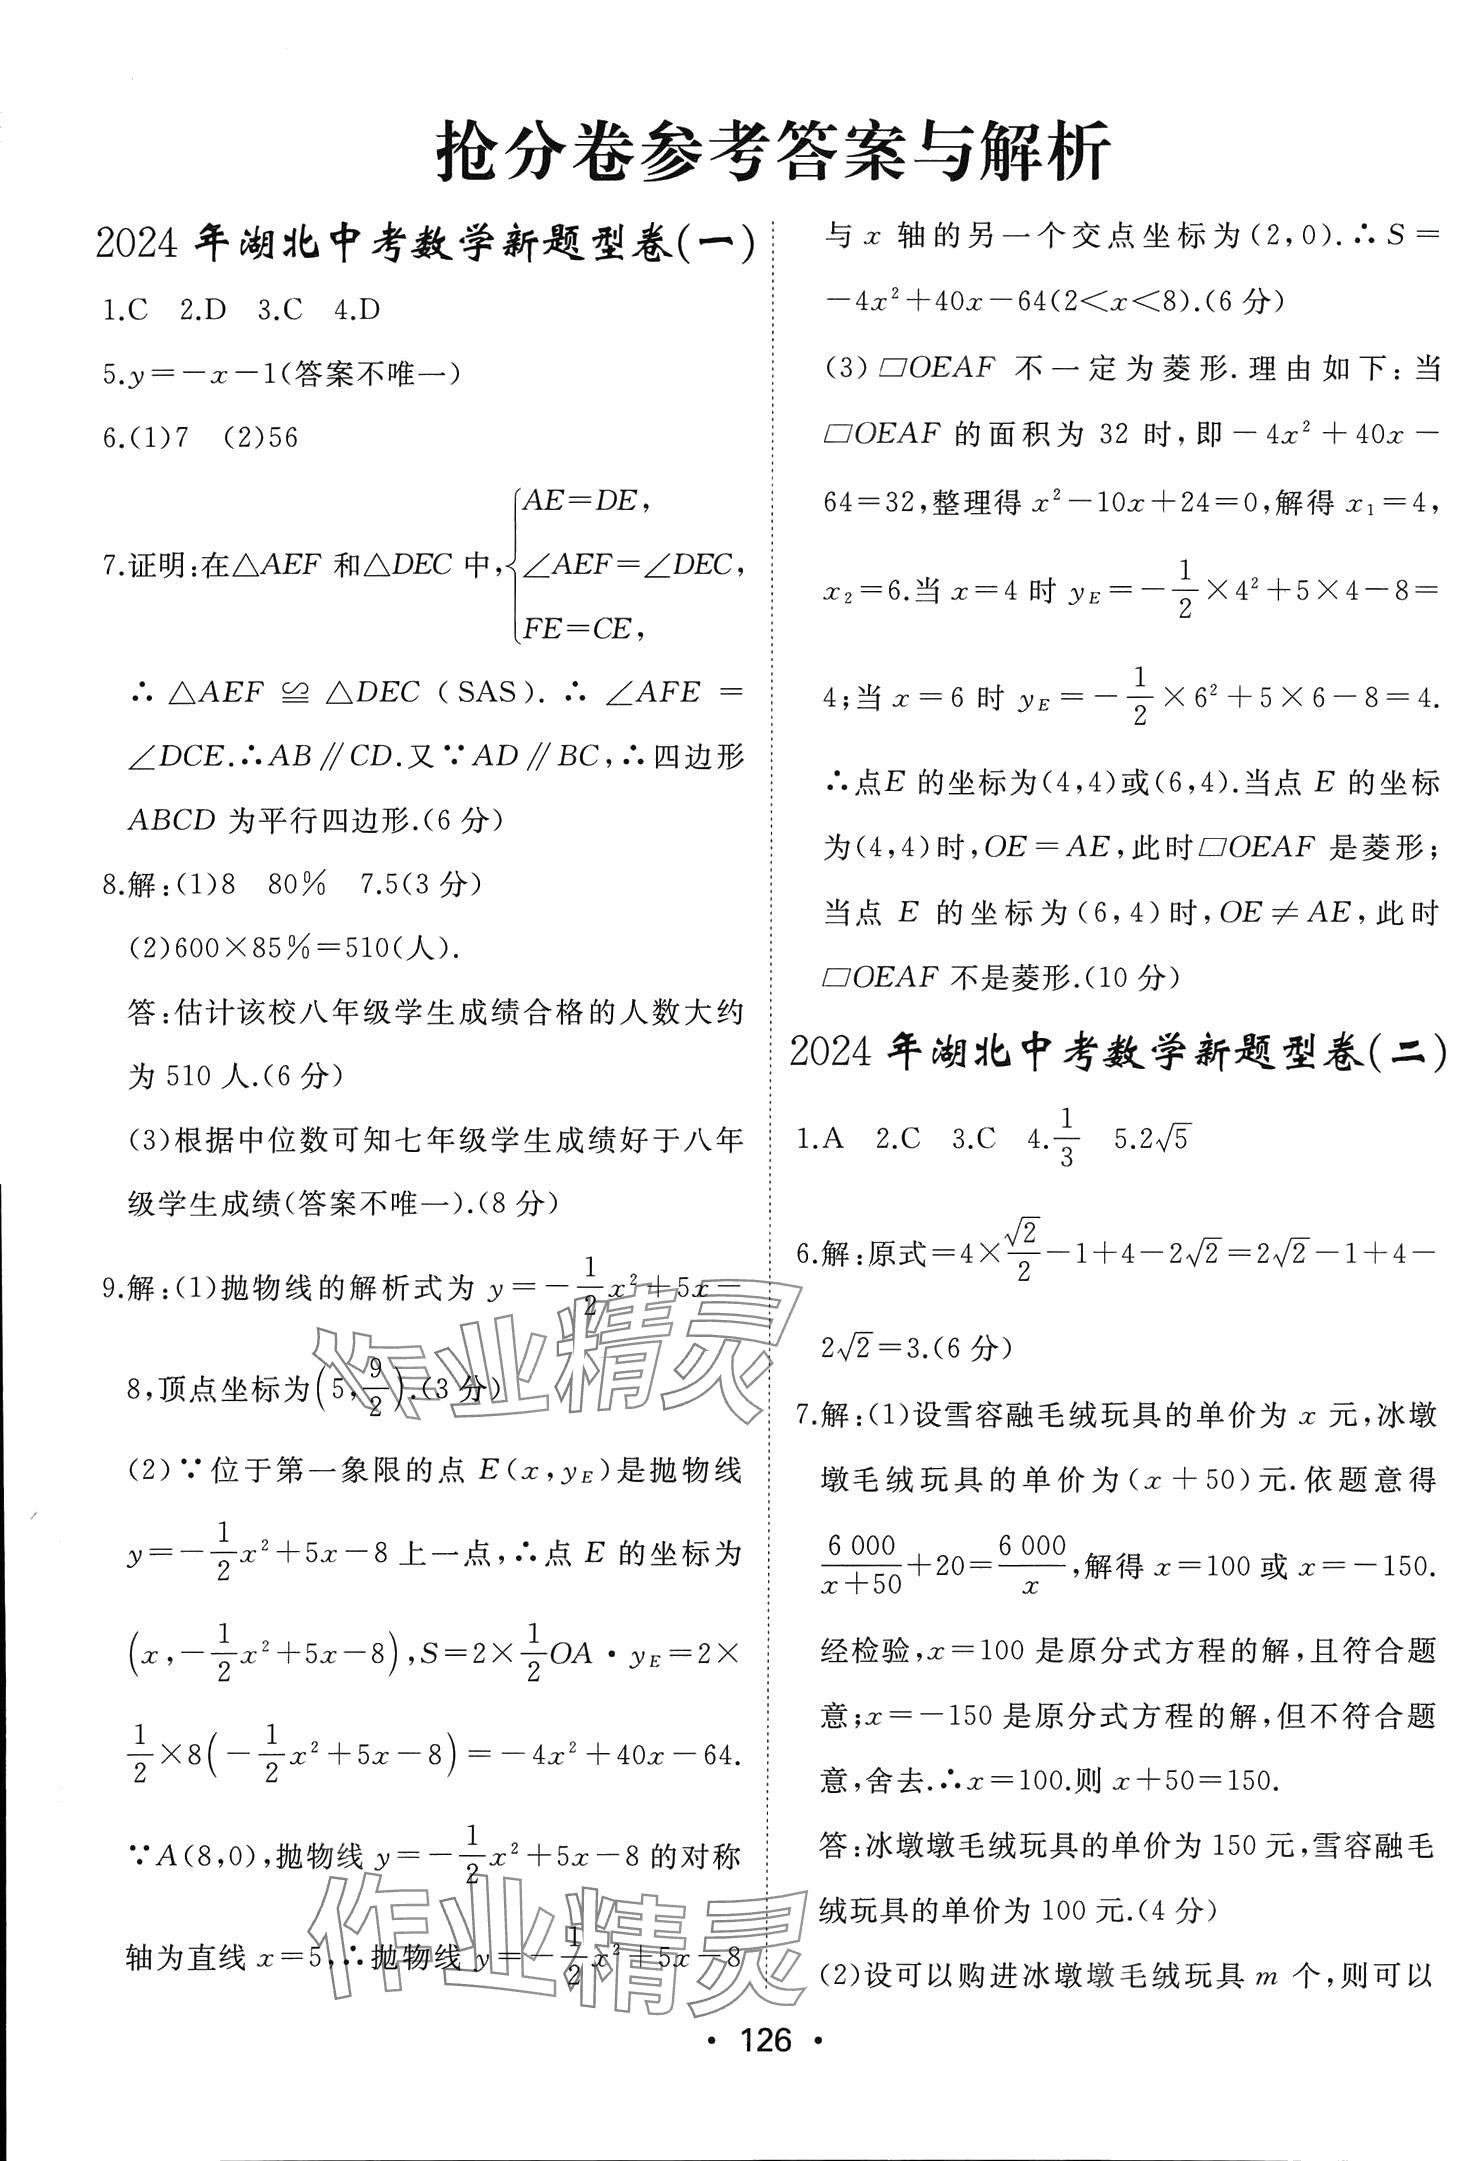 抢分卷参考答案与解析
2024 年湖北中考数学新题型卷(一)
1.C 2.D 3.C 4.D
5.y=-x-1(答案不唯一)
6.(1)7 (2)56
7.证明:在△AEF 和△DEC 中,{AE=DE,
∠AEF=∠DEC,
FE=CE,
∴△AEF≌△DEC(SAS).∴∠AFE=
∠DCE.∴AB∥CD.又∵AD∥BC,∴四边形
ABCD 为平行四边形.(6 分)
8.解:(1)8 80% 7.5(3 分)
(2)600×85%=510(人).
答:估计该校八年级学生成绩合格的人数大约
为 510 人.(6 分)
(3)根据中位数可知七年级学生成绩好于八年
级学生成绩(答案不唯一).(8 分)
9.解:(1)抛物线的解析式为 y=-1/2x²+5x-
8,顶点坐标为(5,9/2).(3 分)
(2)∵位于第一象限的点 E(x,y_E)是抛物线
y=-1/2x²+5x-8 上一点,∴点 E 的坐标为
(x,-1/2x²+5x-8),S=2×1/2OA·y_E=2×
1/2×8(-1/2x²+5x-8)=-4x²+40x-64.
∵A(8,0),抛物线 y=-1/2x²+5x-8 的对称
轴为直线 x=5,∴抛物线 y=-1/2x²+5x-8
与 x 轴的另一个交点坐标为(2,0).∴S=
-4x²+40x-64(2<x<8).(6 分)
(3)▱OEAF 不一定为菱形.理由如下:当
▱OEAF 的面积为 32 时,即-4x²+40x-
64=32,整理得 x²-10x+24=0,解得 x₁=4,
x₂=6.当 x=4 时 y_E=-1/2×4²+5×4-8=
4;当 x=6 时 y_E=-1/2×6²+5×6-8=4.
∴点E 的坐标为(4,4)或(6,4).当点 E 的坐标
为(4,4)时,OE=AE,此时▱OEAF 是菱形;
当点 E 的坐标为(6,4)时,OE≠AE,此时
▱OEAF 不是菱形.(10 分)
2024 年湖北中考数学新题型卷(二)
1.A 2.C 3.C 4.1/3 5.2√5
6.解:原式=4×√2/2-1+4-2√2=2√2-1+4-
2√2=3.(6 分)
7.解:(1)设雪容融毛绒玩具的单价为 x 元,冰墩
墩毛绒玩具的单价为(x+50)元.依题意得
6 000/(x+50)+20=6 000/x,解得 x=100 或 x=-150.
经检验,x=100 是原分式方程的解,且符合题
意;x=-150 是原分式方程的解,但不符合题
意,舍去.∴x=100.则 x+50=150.
答:冰墩墩毛绒玩具的单价为 150 元,雪容融毛
绒玩具的单价为 100 元.(4 分)
(2)设可以购进冰墩墩毛绒玩具 m 个,则可以
作业精灵
作业精灵
·126·